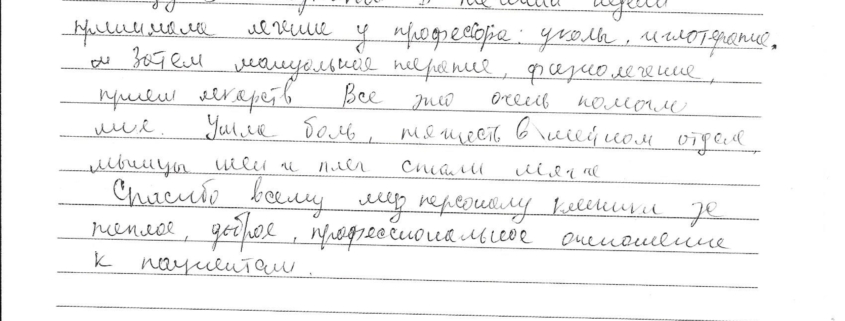 в течении недели
принимала лечение у профессора: уколы, иглотерапие,
а затем мануальное терапие, физиолечение,
прием лекарств Все это очень помогло
мне. Ушла боль, тяжесть в шейном отделе,
мышцы шеи и плеч стали мягче
Спасибо всему мед персоналу клиники за
теплое, доброе, профессиональное отношение
к пациентам.